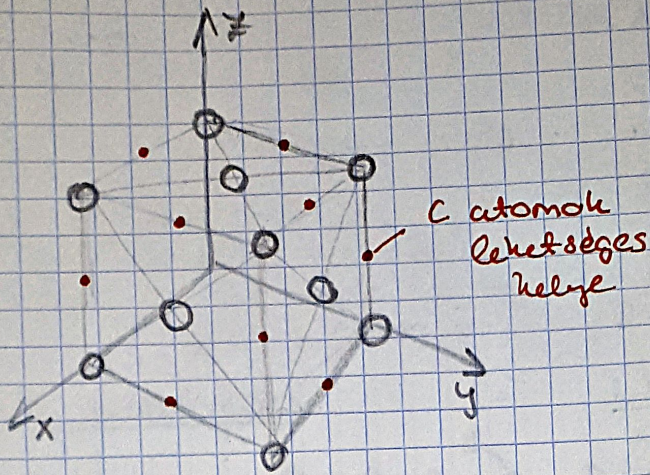 z
C atomok
lehetséges
helye
x
y